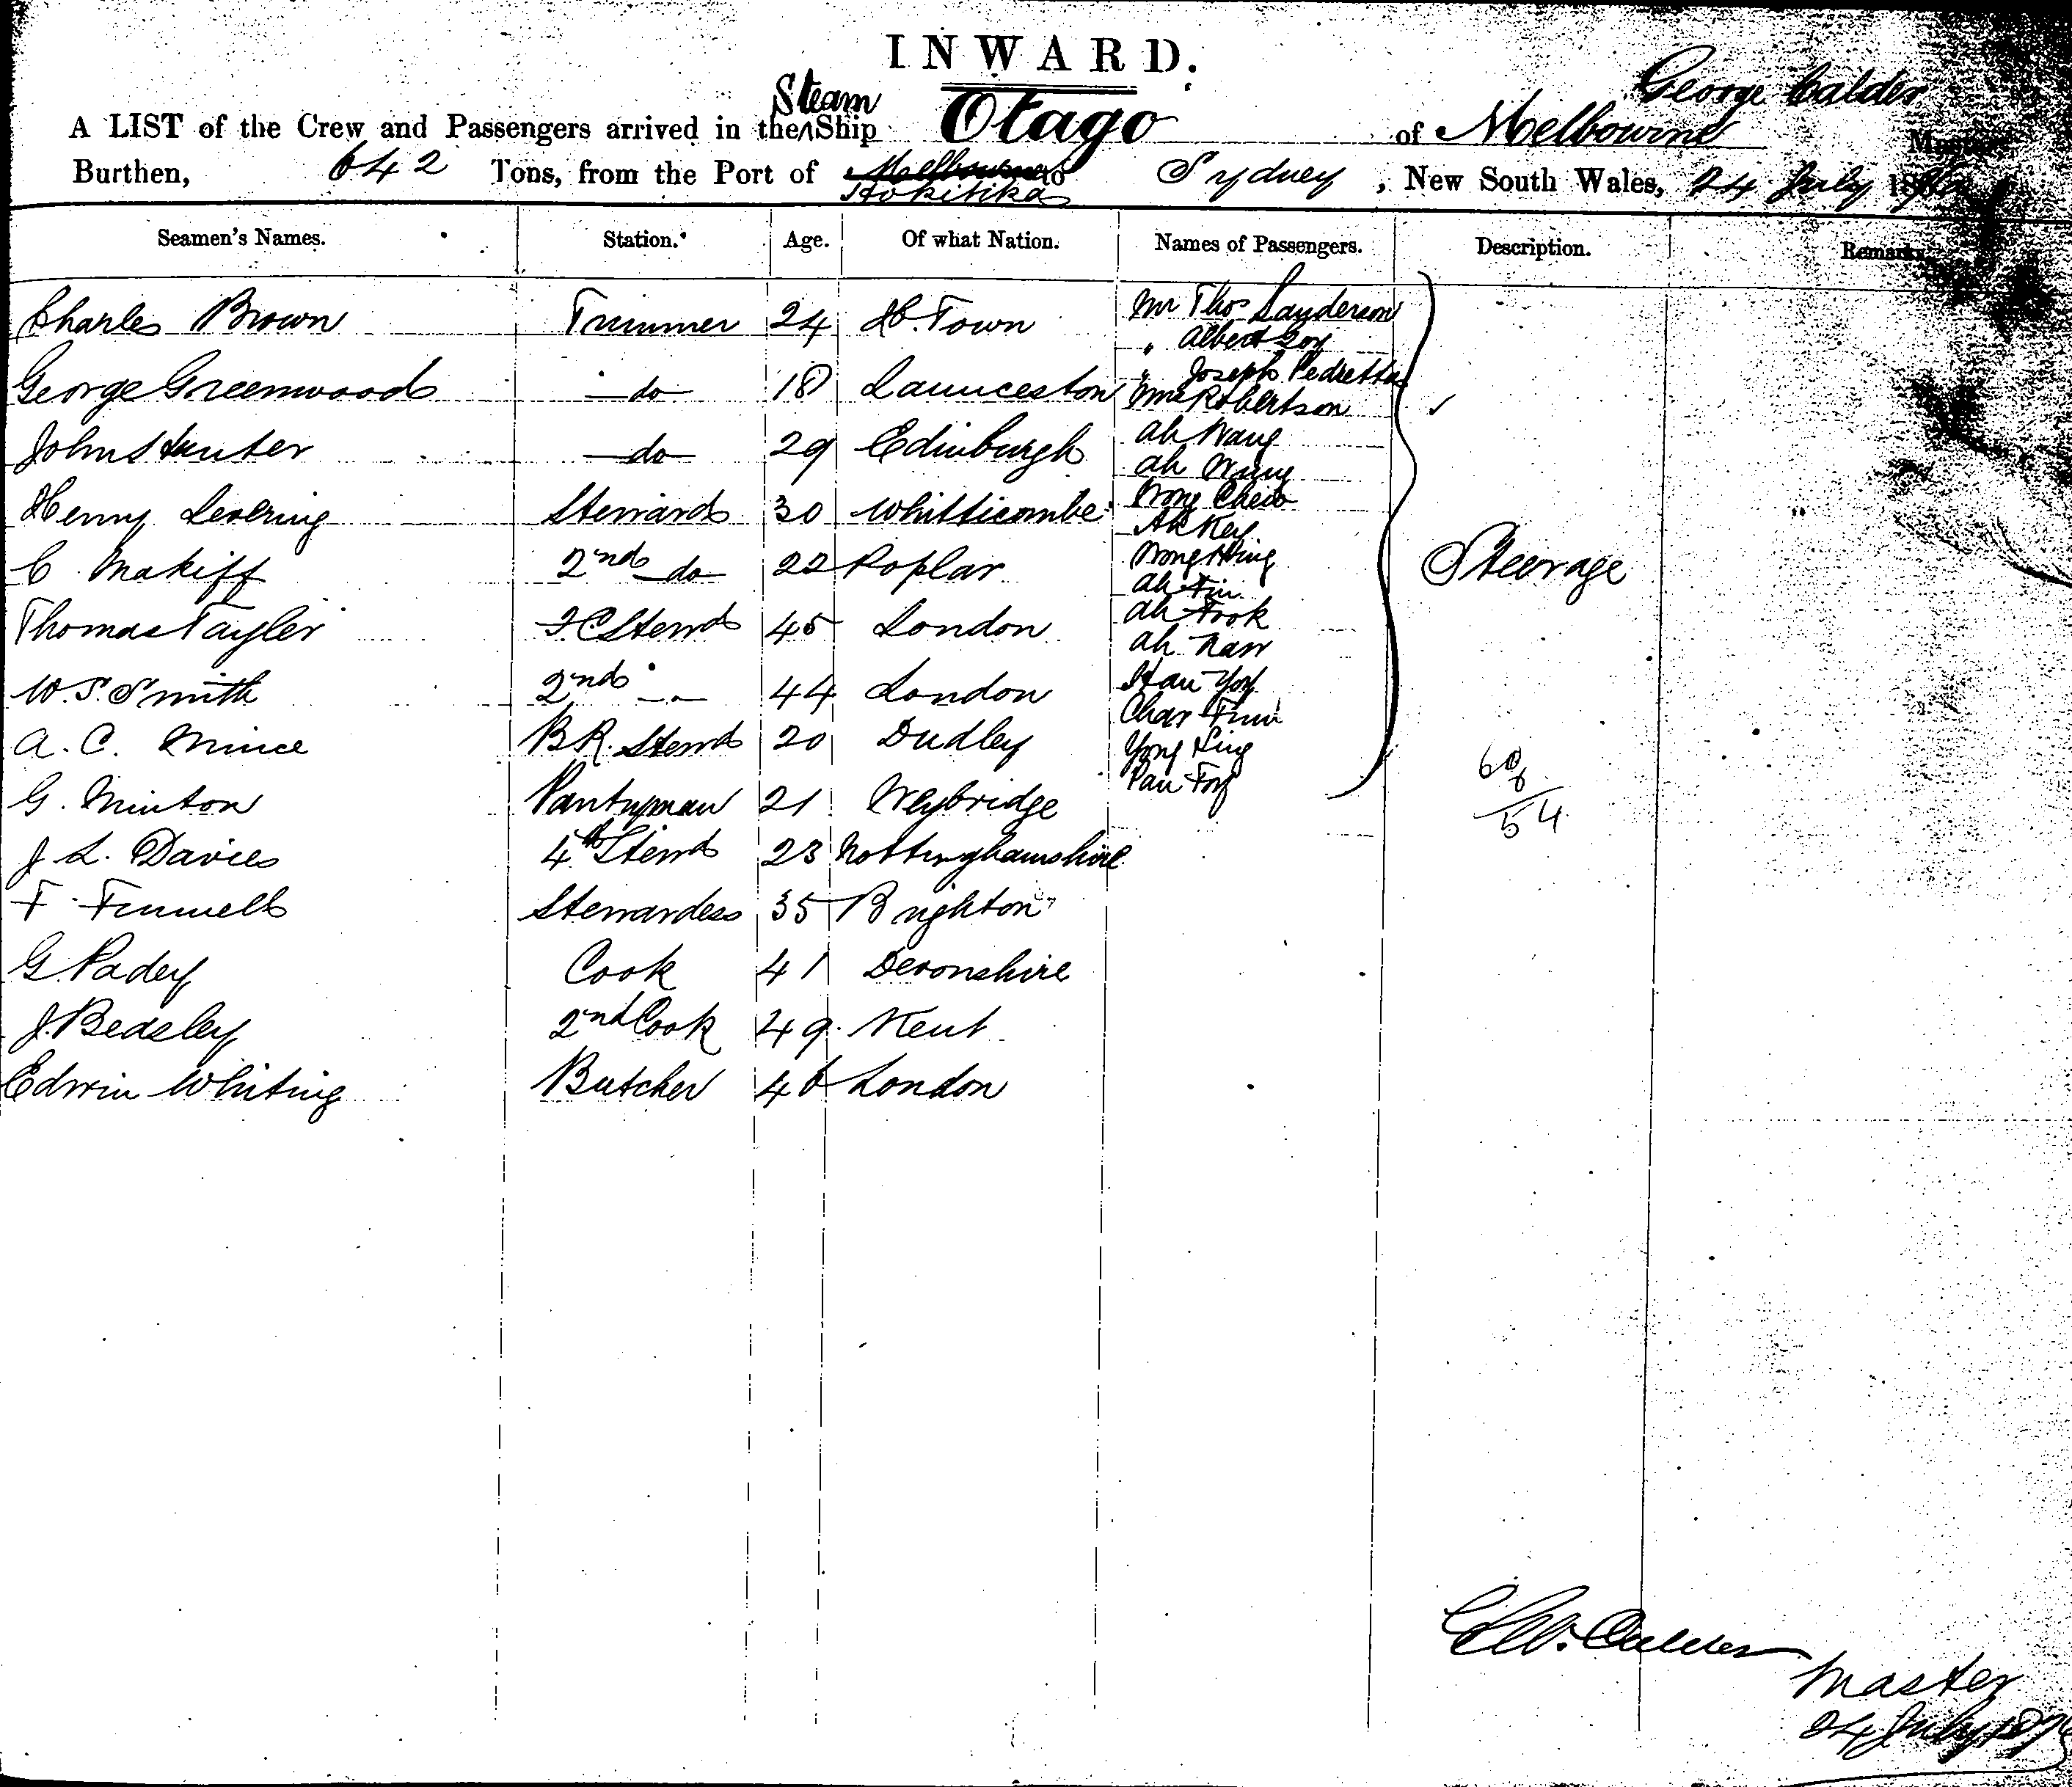 INWARD.
George Calder
A LIST of the Crew and Passengers arrived in the Steam Ship Otago of Melbourne Master,
Burthen, 642 Tons, from the Port of Melbourne to Sydney, New South Wales, 24 July 187
Hokitika
Seamen's Names. Station. Age. Of what Nation. Names of Passengers. Description. Remarks
Charles Brown Trimmer 24 H. Town Mr Thos Sanderson
" Albert Goy
" Joseph Pedretta
George Greenwood do 18 Launceston Mrs Robertson
John Hunter do 29 Edinburgh Ah Wang
Ah Wung
Henry Levering Steward 30 Whitticombe Wong Chew
Ah Key
C Makiff 2nd do 22 Poplar Wong Hing
Ah Fin
Steerage
Thomas Tayler F.C Stewd 45 London Ah Fook
Ah Naw
W. S. Smith 2nd " 44 London Hau Yof
Char Finn
A. C. Mince BR. Stewd 20 Dudley Yong Sing
Pau Foy
G. Minton Pantryman 21 Weybridge
60
6
54
J L. Davies 4th Stewd 23 Nottinghamshire
F Funnell Stewardess 35 Brighton
G. Padey Cook 41 Devonshire
J. Beasley 2nd Cook 49 Kent
Edwin Whiting Butcher 46 London
Calder
Master
24 July 187